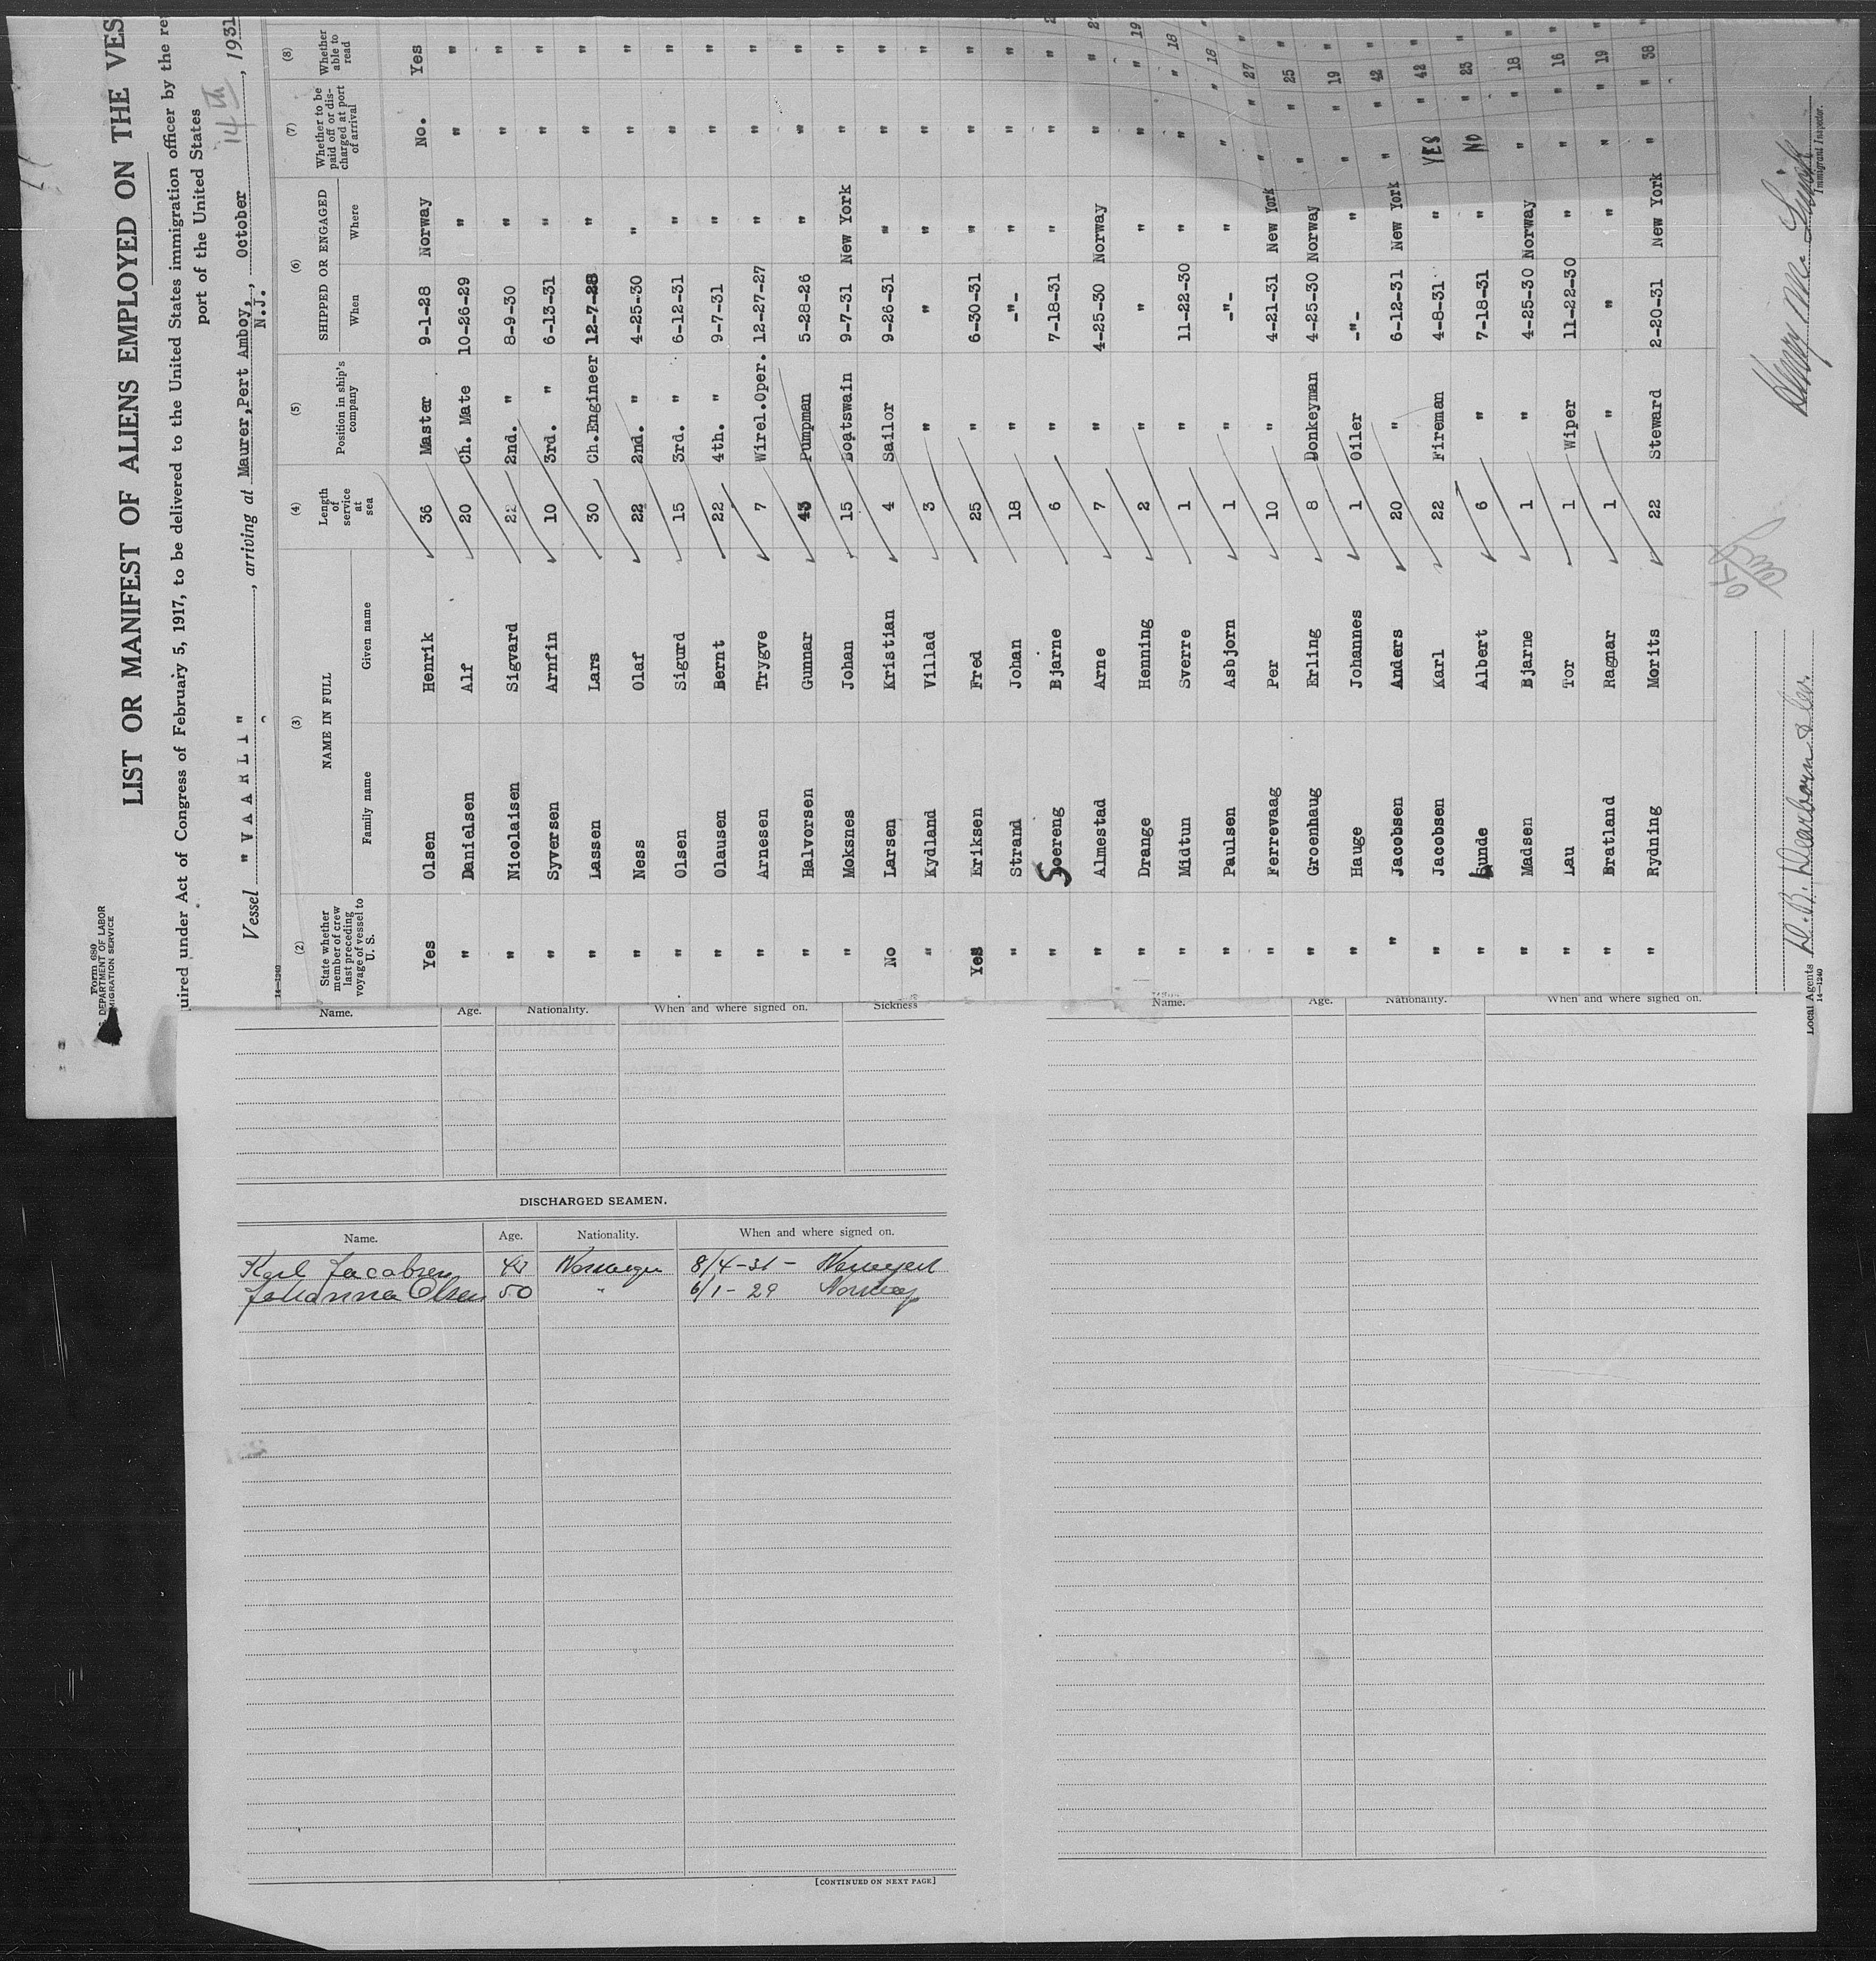 Form 680
DEPARTMENT OF LABOR
MIGRATION SERVICE
LIST OR MANIFEST OF ALIENS EMPLOYED ON THE VES
uired under Act of Congress of February 5, 1917, to be delivered to the United States immigration officer by the re
port of the United States
Vessel "VAARLI", arriving at Maurer,Pert Amboy, N.J., October 14th, 1931
14-1240
(2) (3) (4) (5) (6) (7) (8)
State whether member of crew last preceding voyage of vessel to U. S. NAME IN FULL Family name Given name Length of service at sea Position in ship's company SHIPPED OR ENGAGED When Where Whether to be paid off or discharged at port of arrival Whether able to read
Yes Olsen Henrik 36 Master 9-1-28 Norway No. Yes
" Danielsen Alf 20 Ch. Mate 10-26-29 " " "
" Nicolaisen Sigvard 22 2nd. " 8-9-30 " " "
" Syversen Arnfin 10 3rd. " 6-13-31 " " "
" Lassen Lars 30 Ch.Engineer 12-7-28 " " "
" Ness Olaf 22 2nd. " 4-25-30 " " "
" Olsen Sigurd 15 3rd. " 6-12-31 " " "
" Olausen Bernt 22 4th. " 9-7-31 " " "
" Arnesen Trygve 7 Wirel.Oper. 12-27-27 " " "
" Halvorsen Gunnar 43 Pumpman 5-28-26 " " "
" Moksnes Johan 15 Boatswain 9-7-31 New York " "
No Larsen Kristian 4 Sailor 9-26-31 " " "
" Kydland Villad 3 " " " " "
Yes Eriksen Fred 25 " 6-30-31 " " "
" Strand Johan 18 " -"- " " "
" Soereng Bjarne 6 " 7-18-31 " " "
" Almestad Arne 7 " 4-25-30 Norway " "
" Drange Henning 2 " " " " " 19
" Midtun Sverre 1 " 11-22-30 " " " 18
" Paulsen Asbjorn 1 " -"- " " " 18 "
" Ferrevaag Per 10 " 4-21-31 New York " " 27 "
" Groenhaug Erling 8 Donkeyman 4-25-30 Norway " " 25 "
" Hauge Johannes 1 Oiler -"- " " " 19 "
" Jacobsen Anders 20 " 6-12-31 New York " " 42 "
" Jacobsen Karl 22 Fireman 4-8-31 " YES " 42 "
" Lunde Albert 6 " 7-18-31 " No " 23 "
" Madsen Bjarne 1 " 4-25-30 Norway " " 18 "
" Lau Tor 1 Wiper 11-22-30 " " " 16 "
" Bratland Ragnar 1 " " " " " 19 "
" Rydning Morits 22 Steward 2-20-31 New York " " 38
Local Agents D. B. Dearborn & Co.
14-1240
Immigrant Inspector.
Name. Age. Nationality. When and where signed on. Sickness
DISCHARGED SEAMEN.
Name. Age. Nationality. When and where signed on.
Karl Jacobsen Norwegia 8/4-31 - Newyork
Johanna Olsen 50 " 6/1-29 Norway
[CONTINUED ON NEXT PAGE]
Name. Age. Nationality. When and where signed on.